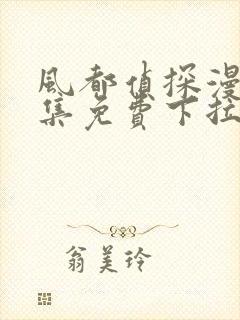 風都偵探漫
集免費下拉
翁美玲